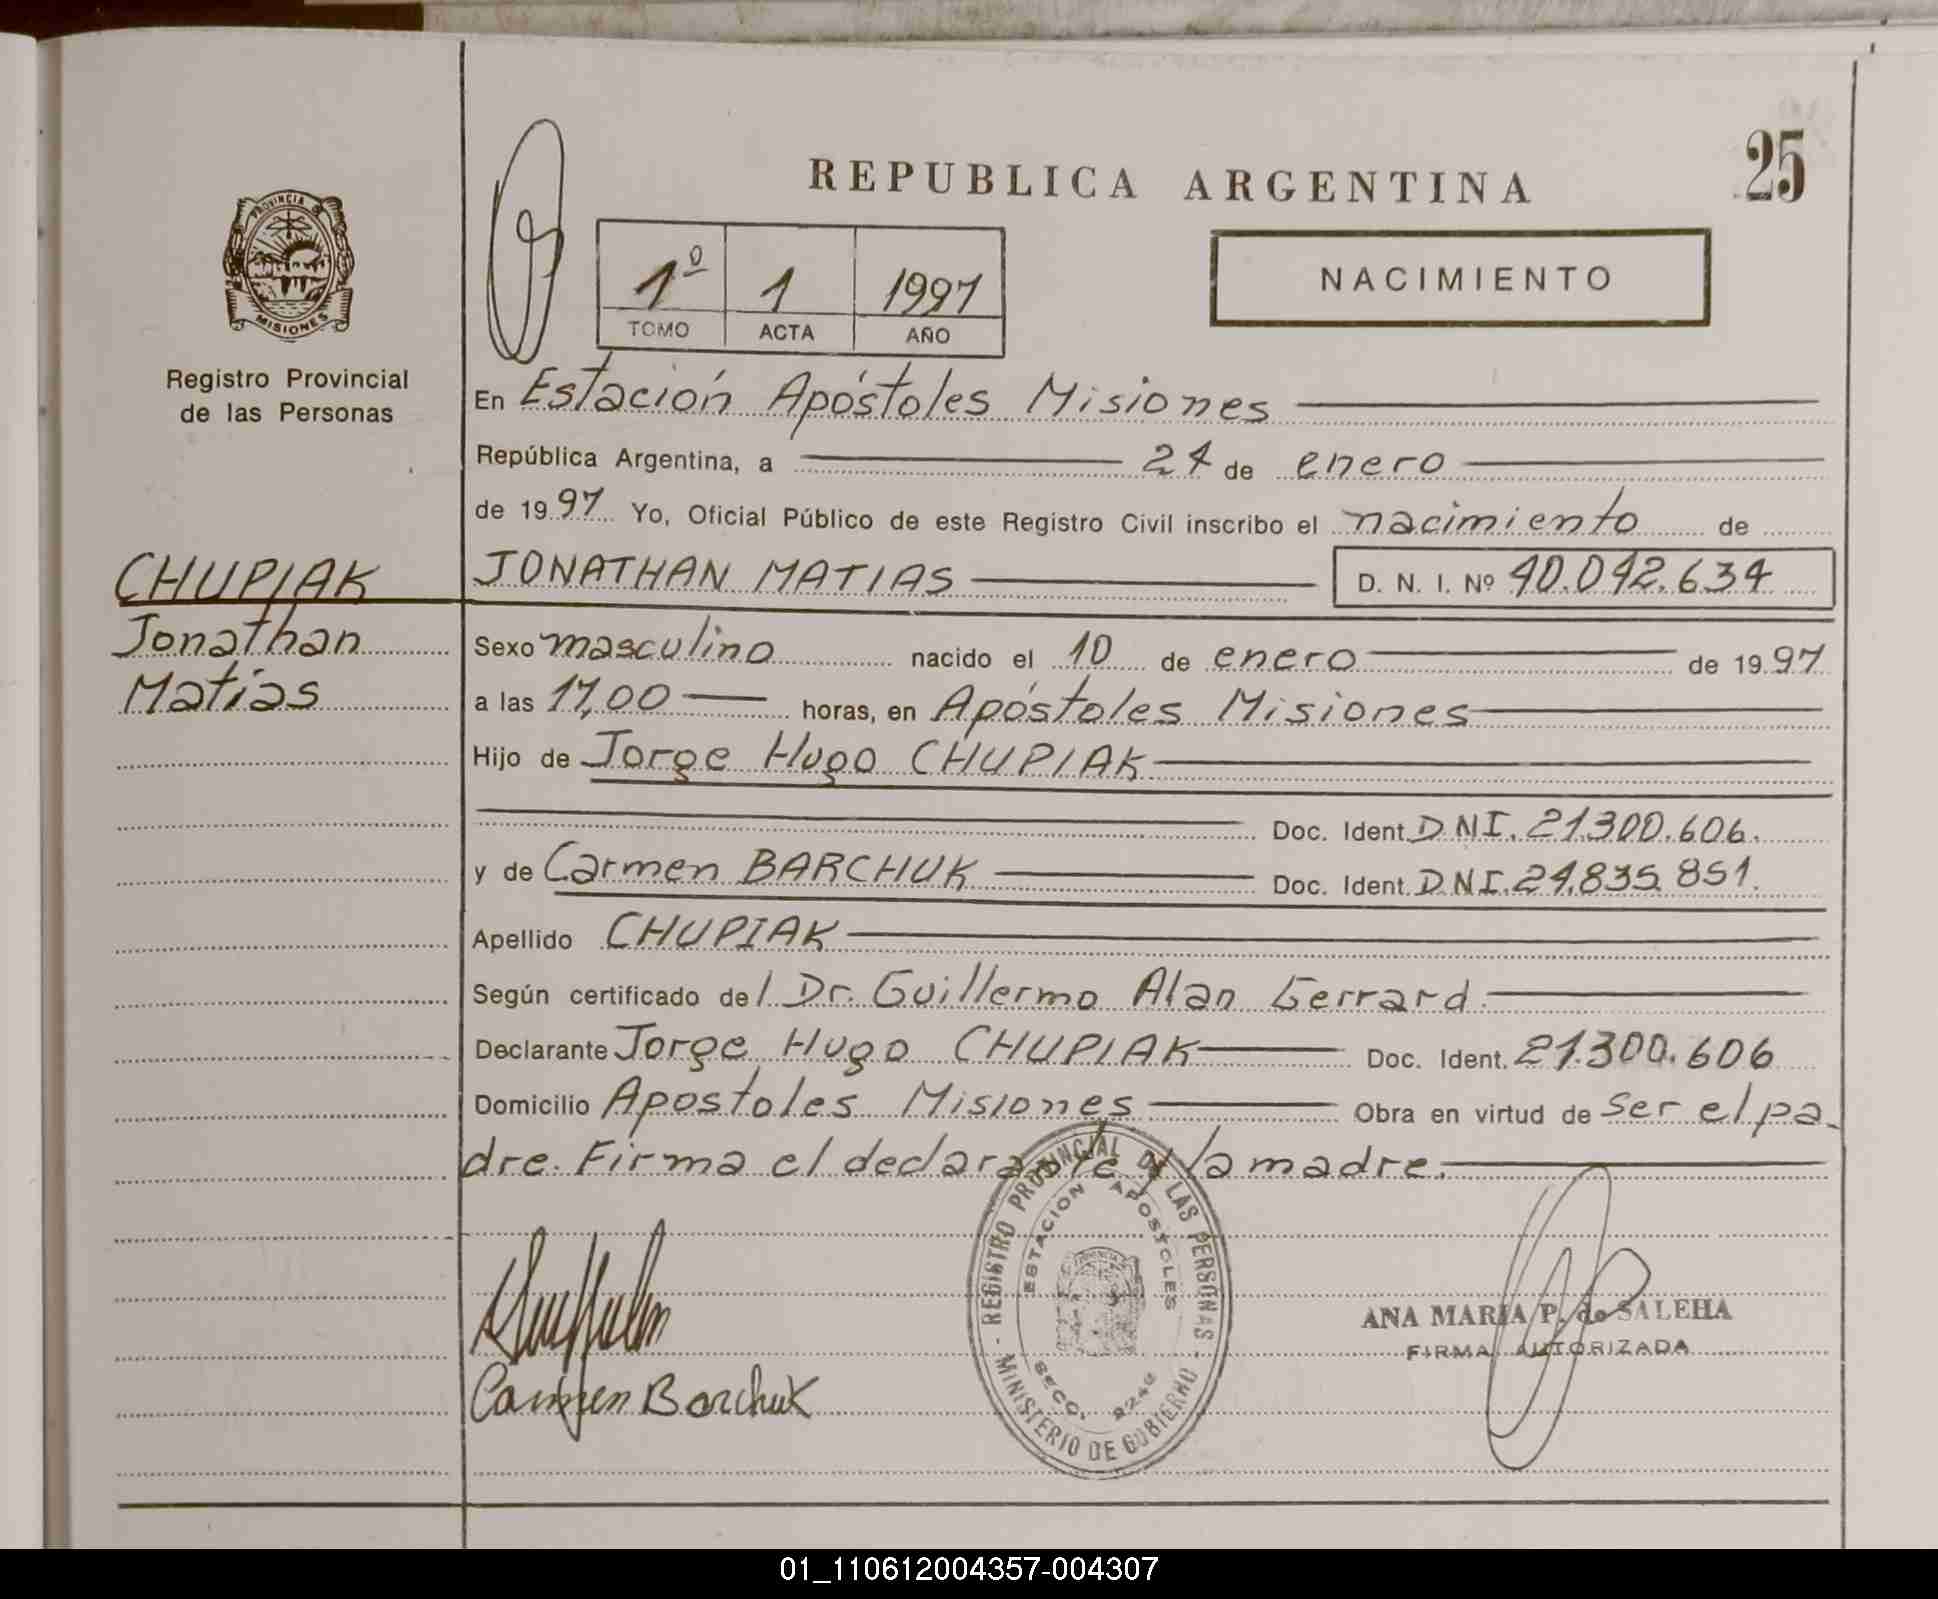 REPUBLICA ARGENTINA
25
PROVINCIA
MISIONES
Registro Provincial
de las Personas
1º 1 1997
TOMO ACTA AÑO
NACIMIENTO
En Estación Apóstoles Misiones
República Argentina, a 24 de enero
de 1997 Yo, Oficial Público de este Registro Civil inscribo el nacimiento de
CHUPIAK
Jonathan
Matias
JONATHAN MATIAS D. N. I. Nº 40.042.634
Sexo masculino nacido el 10 de enero de 1997
a las 17,00 horas, en Apóstoles Misiones
Hijo de Jorge Hugo CHUPIAK
Doc. Ident. DNI. 21.300.606.
y de Carmen BARCHUK Doc. Ident. DNI. 24.835.851.
Apellido CHUPIAK
Según certificado del Dr. Guillermo Alan Gerrard.
Declarante Jorge Hugo CHUPIAK Doc. Ident. 21.300.606
Domicilio Apostoles Misiones Obra en virtud de ser el pa-
dre. Firma el declarante y la madre.
REGISTRO PROVINCIAL DE LAS PERSONAS
ESTACION APOSTOLES
SECC. 8246
- MINISTERIO DE GOBIERNO -
Carmen Barchuk
ANA MARIA P. de SALEHA
FIRMA AUTORIZADA
01_110612004357-004307